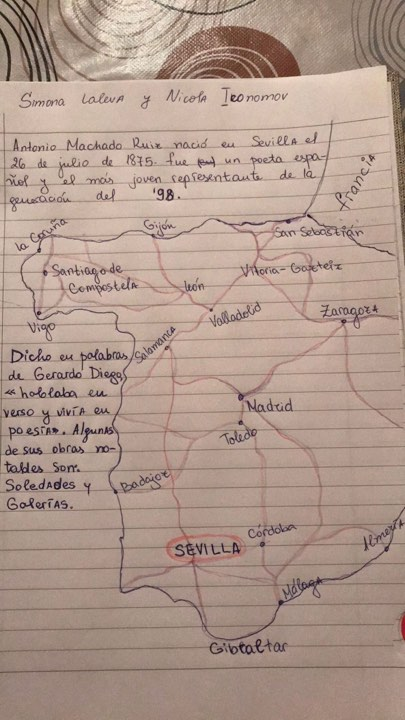 Simona Laleva y Nicola Iconomov
Antonio Machado Ruiz nació en Sevilla el
26 de julio de 1875. fue un poeta espa-
ñol y el más joven representante de la
generación del '98.
Francia
La Coruña
Gijón
San Sebastián
Santiago de
Compostela
León
Vitoria-Gasteiz
Vigo
Valladolid
Zaragoza
Salamanca
Dicho en palabras
de Gerardo Diego
«hablaba en
verso y vivía en
poesía». Algunas
de sus obras no-
tables son:
Soledades y
Galerías.
Madrid
Toledo
Badajoz
Córdoba
SEVILLA
Almería
Málaga
Gibraltar